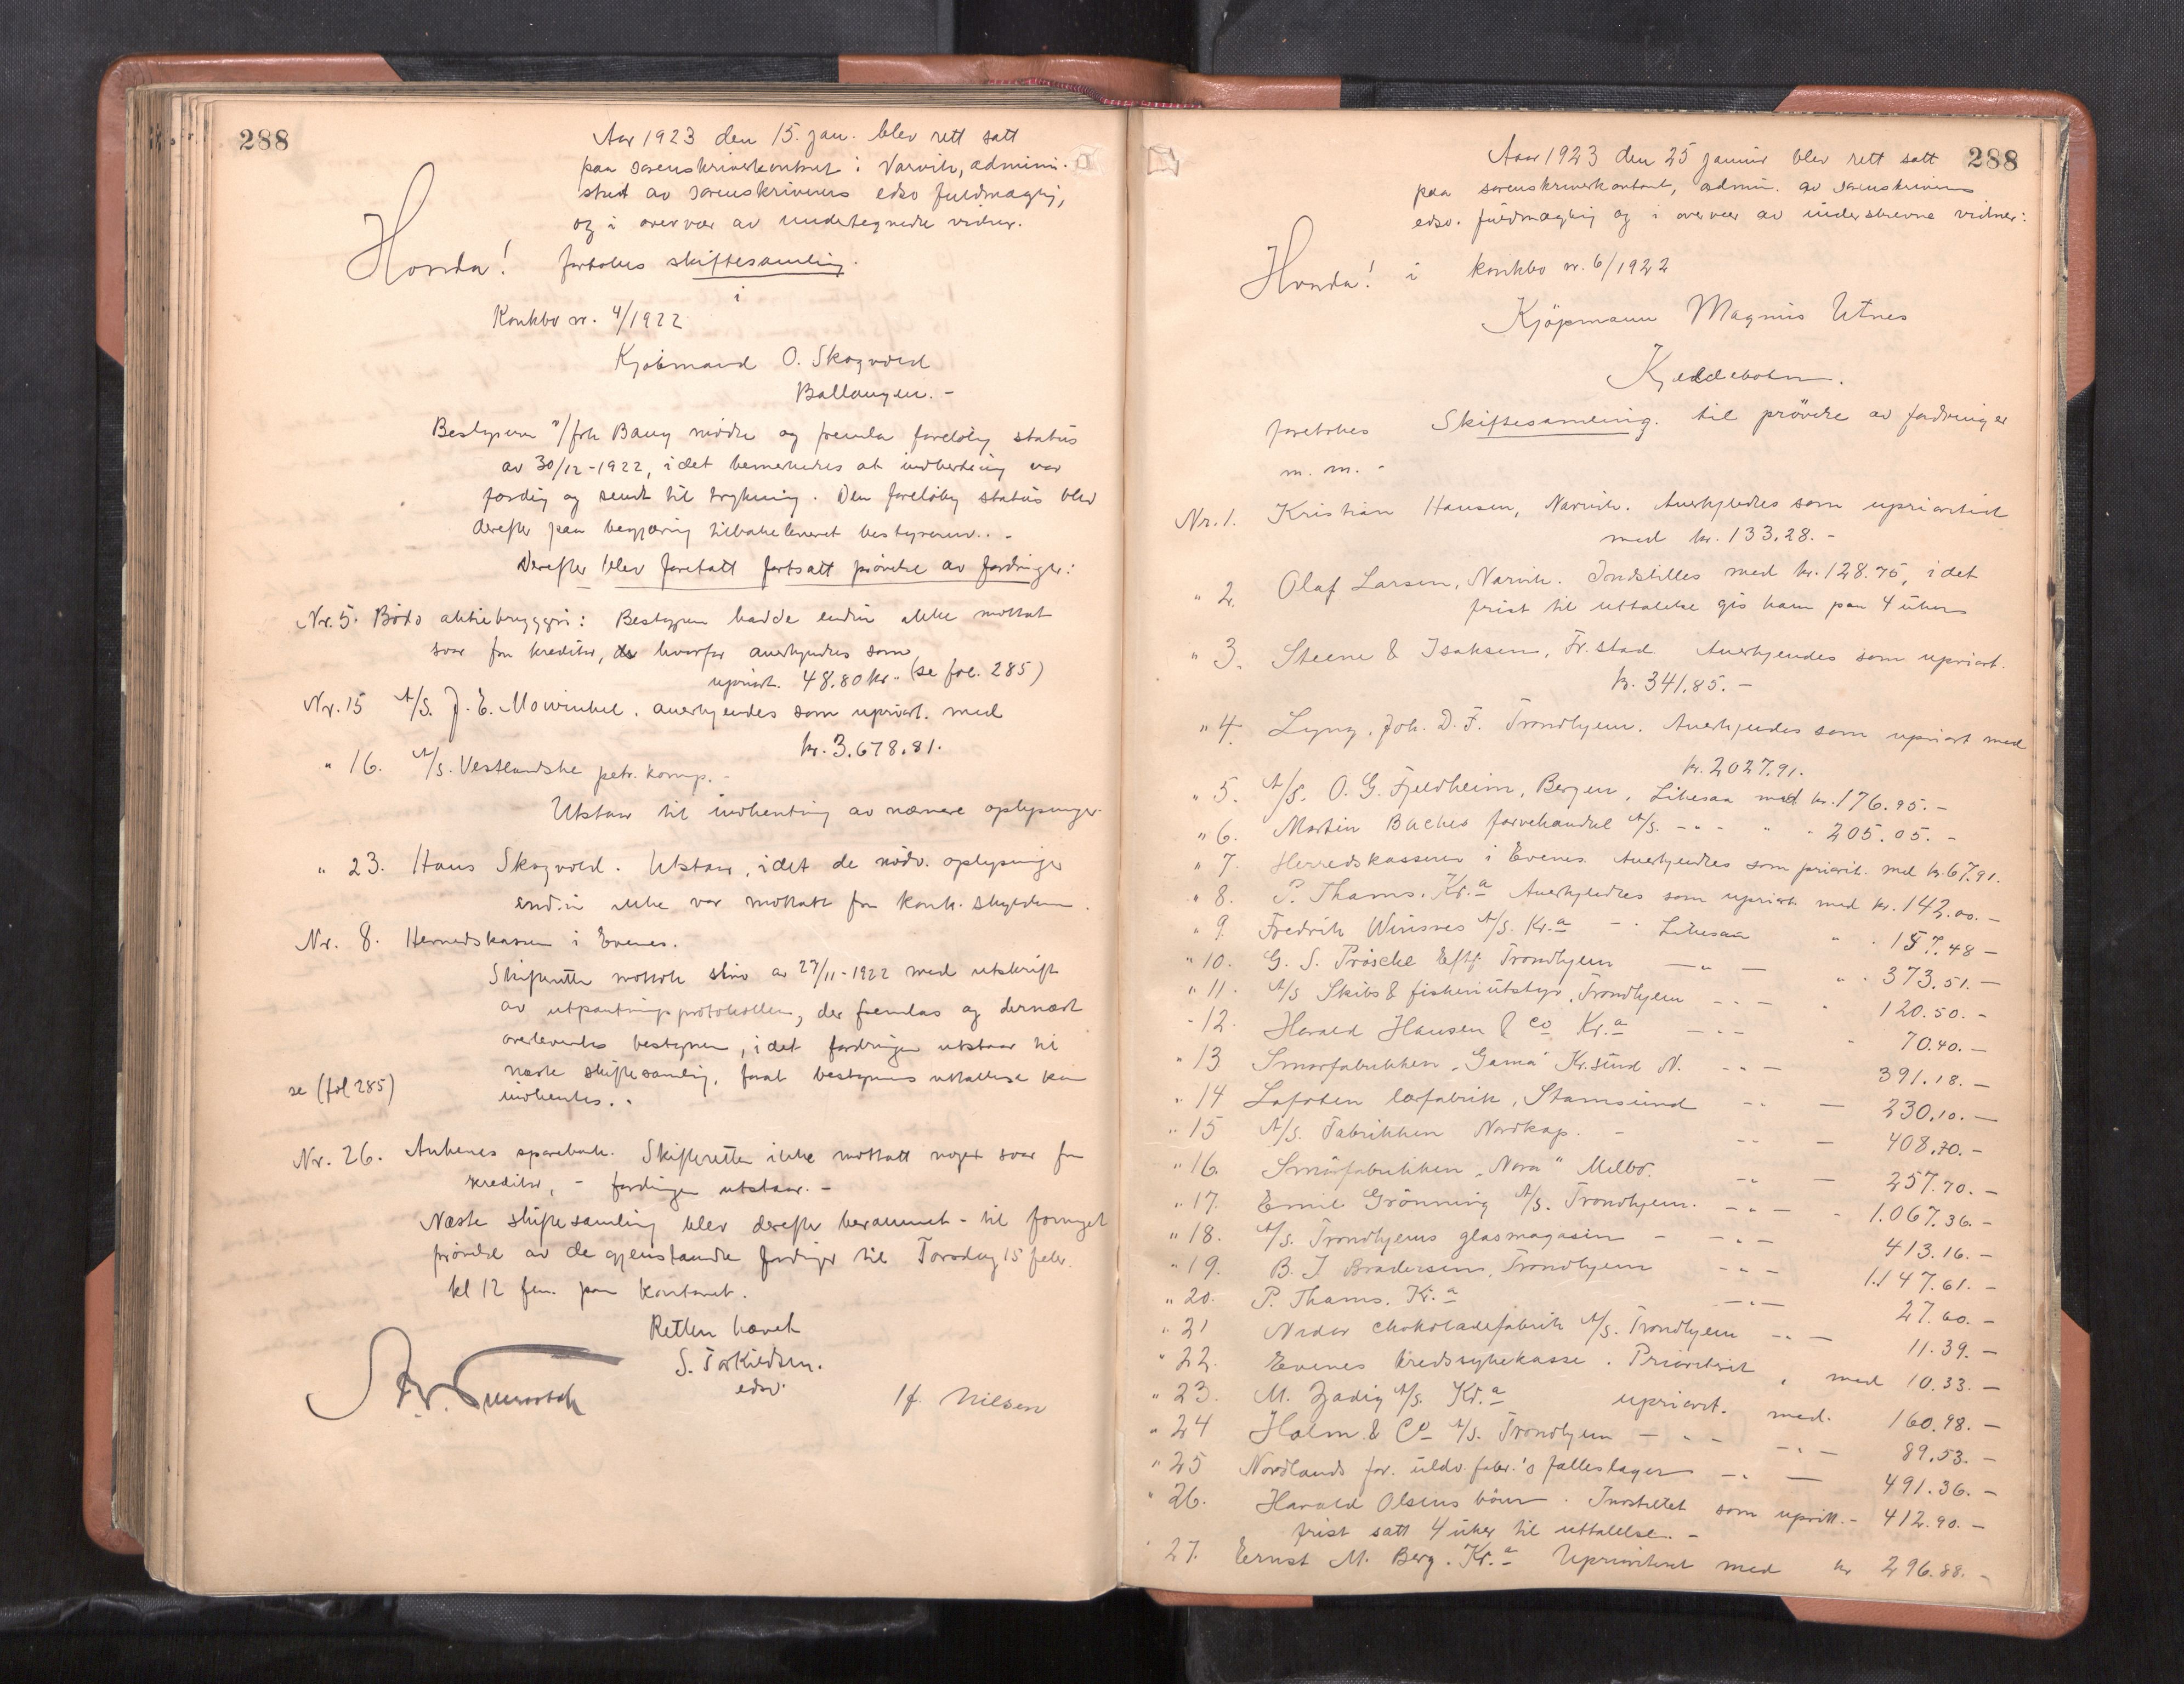 288
Aar 1923 den 15. jan. blev rett satt
paa sorenskriverkontoret i Narvik, admini-
stret av sorenskriverens edsv fuldmægtig,
og i overvær av undertegnede vidner.
Honda! foretokes skiftesamling.
i
Konkbo nr. 4/1922
Kjøbmand O. Skogvold
Ballangen. -
Bestyreren frk Bang mødte og fremla foreløbig status
av 30/12-1922, idet bemerkedes at indberetning var
færdig og sendt til trykning. Den foreløbig status blev
derefter paa begjæring tilbakeleveret bestyreren. . -
Derefter blev foretatt fortsatt prøvelse av fordringer:
Nr. 5. Bodø aktiebryggeri: Bestyreren hadde endnu ikke mottat
svar fra kreditor, hvorfor anerkjendtes som
upriorit. 48.80 kr. - (se fol. 285)
Nr. 15 A/S. J. E. Mowinkel. anerkjendes som upriorit. med
kr. 3.678.81.
" 16. A/S. Vestlandske petr. komp. -
Utstaar til indhenting av nærmere oplysninger.
" 23. Hans Skogvold. Utstaar, idet de nødv. oplysninger
endnu ikke var mottatt fra konk. skyldneren.
Nr. 8. Herredskassen i Evenes.
Skifteretten mottok skriv av 27/11-1922 med utskrift
av utpantningsprotokollen, der fremlas og dernæst
overleveredes bestyreren, idet fordringen utstaar til
næste skiftesamling, forat bestyrerens uttalelse kan
se (fol 285) indhentes. .
Nr. 26. Ankenes sparebank. Skifteretten ikke mottatt noget svar fra
kreditor, - fordringen utstaar. -
Næste skiftesamling blev derefter berammet - til fornyet
prøvelse av de gjenstaaende fordringer til Torsdag 15 febr.
kl 12 fm. paa kontoret.
Retten hævet
S. Torkildsen.
edsv.
H. Nilsen
288
Aar 1923 den 25 januar blev rett satt
paa sorenskriverkontoret, admin. av sorenskriverens
edsv. fuldmægtig og i overvær av underskrevne vidner:
Honda! i konkbo nr. 6/1922
Kjöpmann Magnus Utnes
Kjeldebotn.
foretokes Skiftesamling. til prövelse av fordringer
m. m. -
Nr. 1. Kristian Hansen, Narvik. Anerkjendtes som uprioritert
med kr. 133.28. -
" 2. Olaf Larsen, Narvik. Indstilles med kr. 128.75, idet
frist til uttalelse gis ham paa 4 uker
" 3. Steene & Isaksen, Fr.stad Anerkjendes som upriorit.
kr. 341.85. -
" 4. Lyng, Joh. D. F. Trondhjem. Anerkjendes som upriorit med
kr. 2027.91.
" 5. A/S. O. G. Fjeldheim, Bergen, Likesaa med kr. 176.95. -
" 6. Martin Baches farvehandel A/S. - " - " " 205.05. -
" 7. Herredskassen i Evenes Anerkjendtes som priorit. med kr. 67.91.
" 8. P. Thams. Kr.a Anerkjendtes som upriorit med kr. 142.00. -
" 9. Fredrik Winsnes A/S. Kr.a - . Likesaa " " 157.48 -
" 10. G. S. Pröschl Eftf. Trondhjem - " - " " 373.51. -
" 11. A/S Skibs & fiskeriutstyr, Trondhjem - " - " 120.50. -
" 12. Harald Hansen & Co Kr.a - " - " 70.40. -
" 13 Smørfabrikken "Gema" Kr.sund N. - " - 391.18. -
" 14 Lofoten lærfabrik, Stamsund - " - 230.10. -
" 15 A/S. Fabrikken Nordkap. - - " - 408.70. -
" 16. Smørfabrikken "Nora" Melbo. - " - 257.70. -
" 17. Emil Grönning A/S. Trondhjem. - " - " 1.067.36. -
" 18. A/S. Trondhjems glasmagasin - - " - 413.16. -
" 19. B. J Brodersen, Trondhjem - " - 1.147.61. -
" 20. P. Thams. Kr.a - " - 27.60. -
" 21 Nidar chokoladefabrik A/S. Trondhjem - " - 11.39. -
" 22. Evenes kredssykekasse. Prioritert " med 10.33. -
" 23. M. Zadig A/S. Kr.a upriorit. med. 160.98. -
" 24 Holm & Co A/S. Trondhjem - " - - " - 89.53. -
" 25 Nordlands for. uldv. fabr.'s fælleslager - " - 491.36. -
" 26. Harald Olsens bönn. Indstillet som uprit. - 412.90. -
frist satt 4 uker til uttalelse. -
" 27. Ernst M. Berg. Kr.a Uprioritert med kr 296.88. -